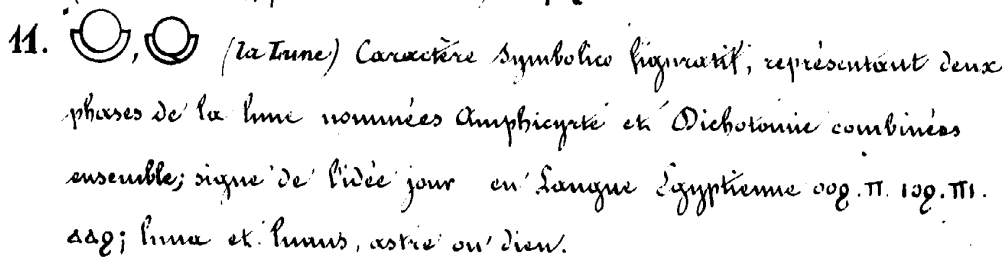 11. , (la Lune) Caractère Symbolico figuratif, représentant deux
phases de la lune nommées Amphicyrte et Dichotomie combinées
ensemble; signe de l'idée jour en Langue Égyptienne ⲟⲟϩ.ⲡ. ⲓⲟϩ.ⲡⲓ.
ⲁⲁϩ; luna et lunus, astre ou dieu.